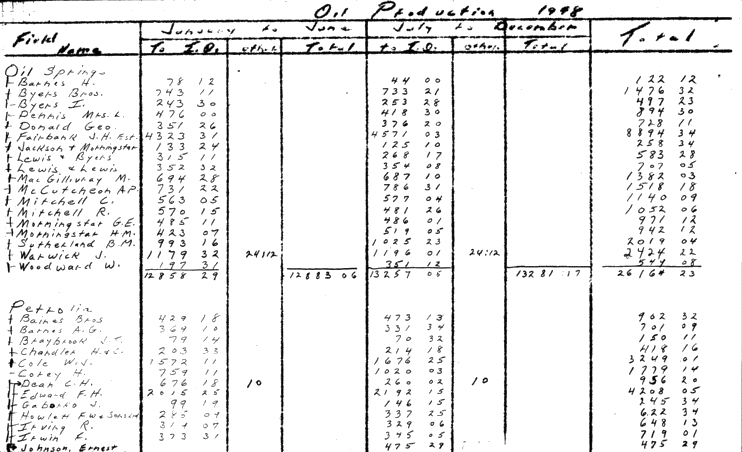 Oil Production 1948
Field Name January to June July to December Total
To I.O. other Total to I.O. other Total
Oil Springs
Barnes H. 78 12 44 00 122 12
Byers Bros. 743 11 733 21 1476 32
Byers I. 243 30 253 28 497 23
Dennis Mrs. L. 476 00 418 30 894 30
Donald Geo. 351 26 376 20 728 11
Fairbank J.H. Est. 4323 31 4571 03 8894 34
Jackson & Morningstar 133 24 125 10 258 34
Lewis & Byers 315 11 268 17 583 28
Lewis & Lewis 352 32 354 08 707 05
MacGillivray M. 694 28 687 10 1382 03
McCutcheon A.P. 731 22 786 31 1518 18
Mitchell C. 563 05 577 04 1140 09
Mitchell R. 570 15 481 26 1052 06
Morningstar G.E. 485 11 486 01 971 12
Morningstar H.M. 423 07 519 05 942 12
Sutherland B.M. 993 16 1025 23 2019 04
Warwick J. 1179 32 24:12 1196 01 24:12 2424 22
Woodward W. 197 31 351 12 549 08
12858 29 12883 06 13257 05 13281:17 26164 23
Petrolia
Baines Bros 429 18 473 13 902 32
Barnes A.G. 364 10 331 34 701 09
Braybrook J.T. 79 14 70 32 150 11
Chandler H.&C. 203 33 214 18 418 16
Cole W.J. 1572 11 1676 25 3249 01
Corey H. 759 11 1020 03 1779 14
Dean C.H. 676 18 10 260 02 10 956 20
Edward F.H. 2015 25 2192 15 4208 05
Gaborko J. 99 19 146 15 245 34
Howlett F.W. & Sons 285 09 337 25 622 34
Irving R. 319 07 329 06 648 13
Irwin F. 373 31 345 05 719 01
Johnson, Ernest 475 29 475 29